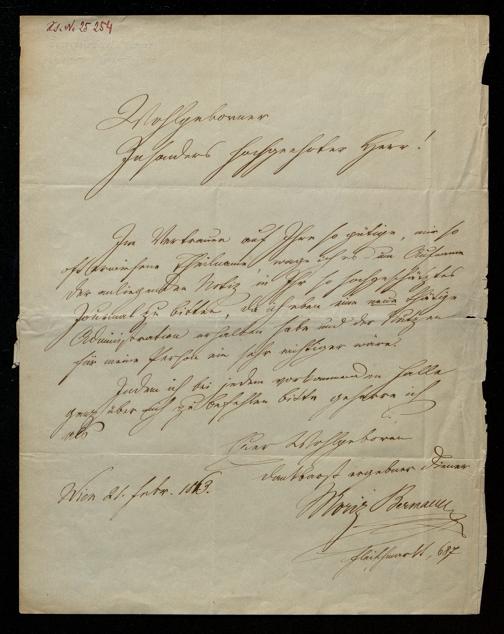 I. N. 25 254
Wohlgeborner
Insonders hochgeehrter Herr!
Im Vertrauen auf Ihre so gütige, mir so
oft erwiesene Theilname wage ich es um Aufname
der anliegenden Notiz in Ihr so hochgeschätztes
Journal zu bitten, da ich eben eine neue thätige
Administration erhalten habe und der Nutzen
für meine Person ein sehr wichtiger wäre.
Indem ich bei jedem vorkommenden Falle
ganz über mich zu befehlen bitte geharre ich
als
Euer Wohlgeboren
dankbarst ergebner Diener
Wien 21. Febr.
Moriz Bermann
Fleischmarkt, 687